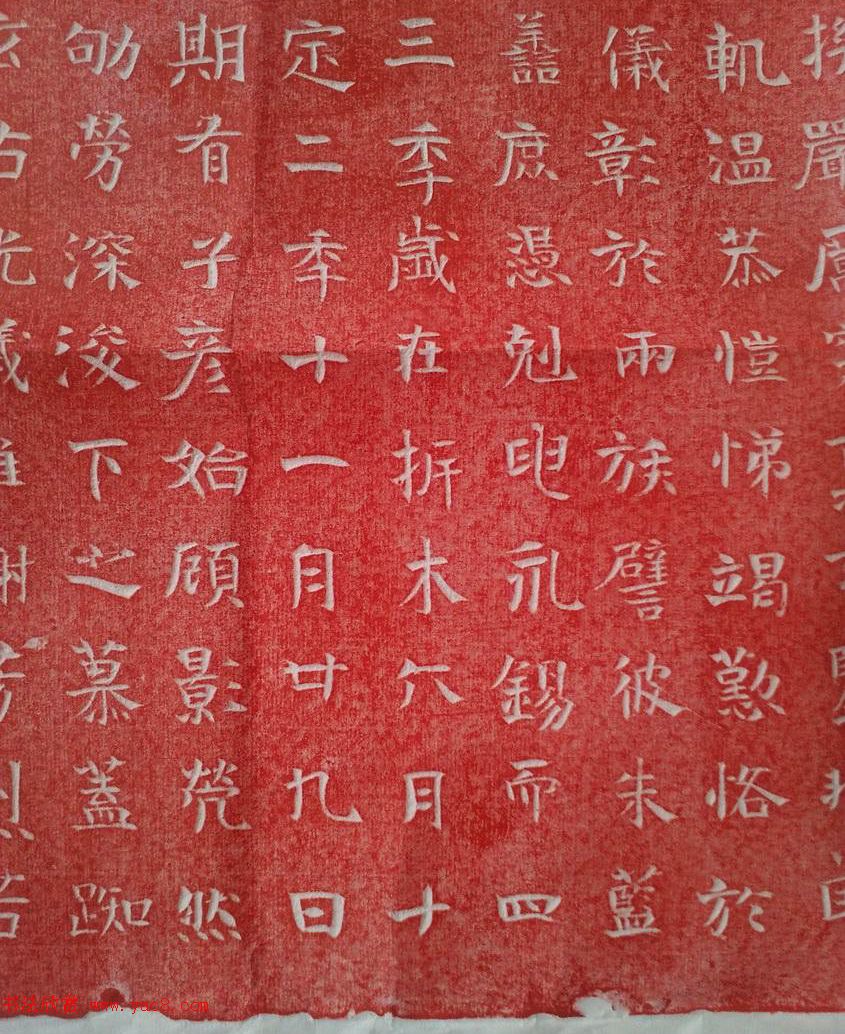 軌温恭愷悌竭懃恪於
儀彰於兩族譬彼朱藍
譱庶憑剋䎡永錫而四
三季歲在折木六月十
定二季十一月廿九日
期有子彦始顧影煢然
劬勞深浚下之慕蓋踟
www.yac8.com